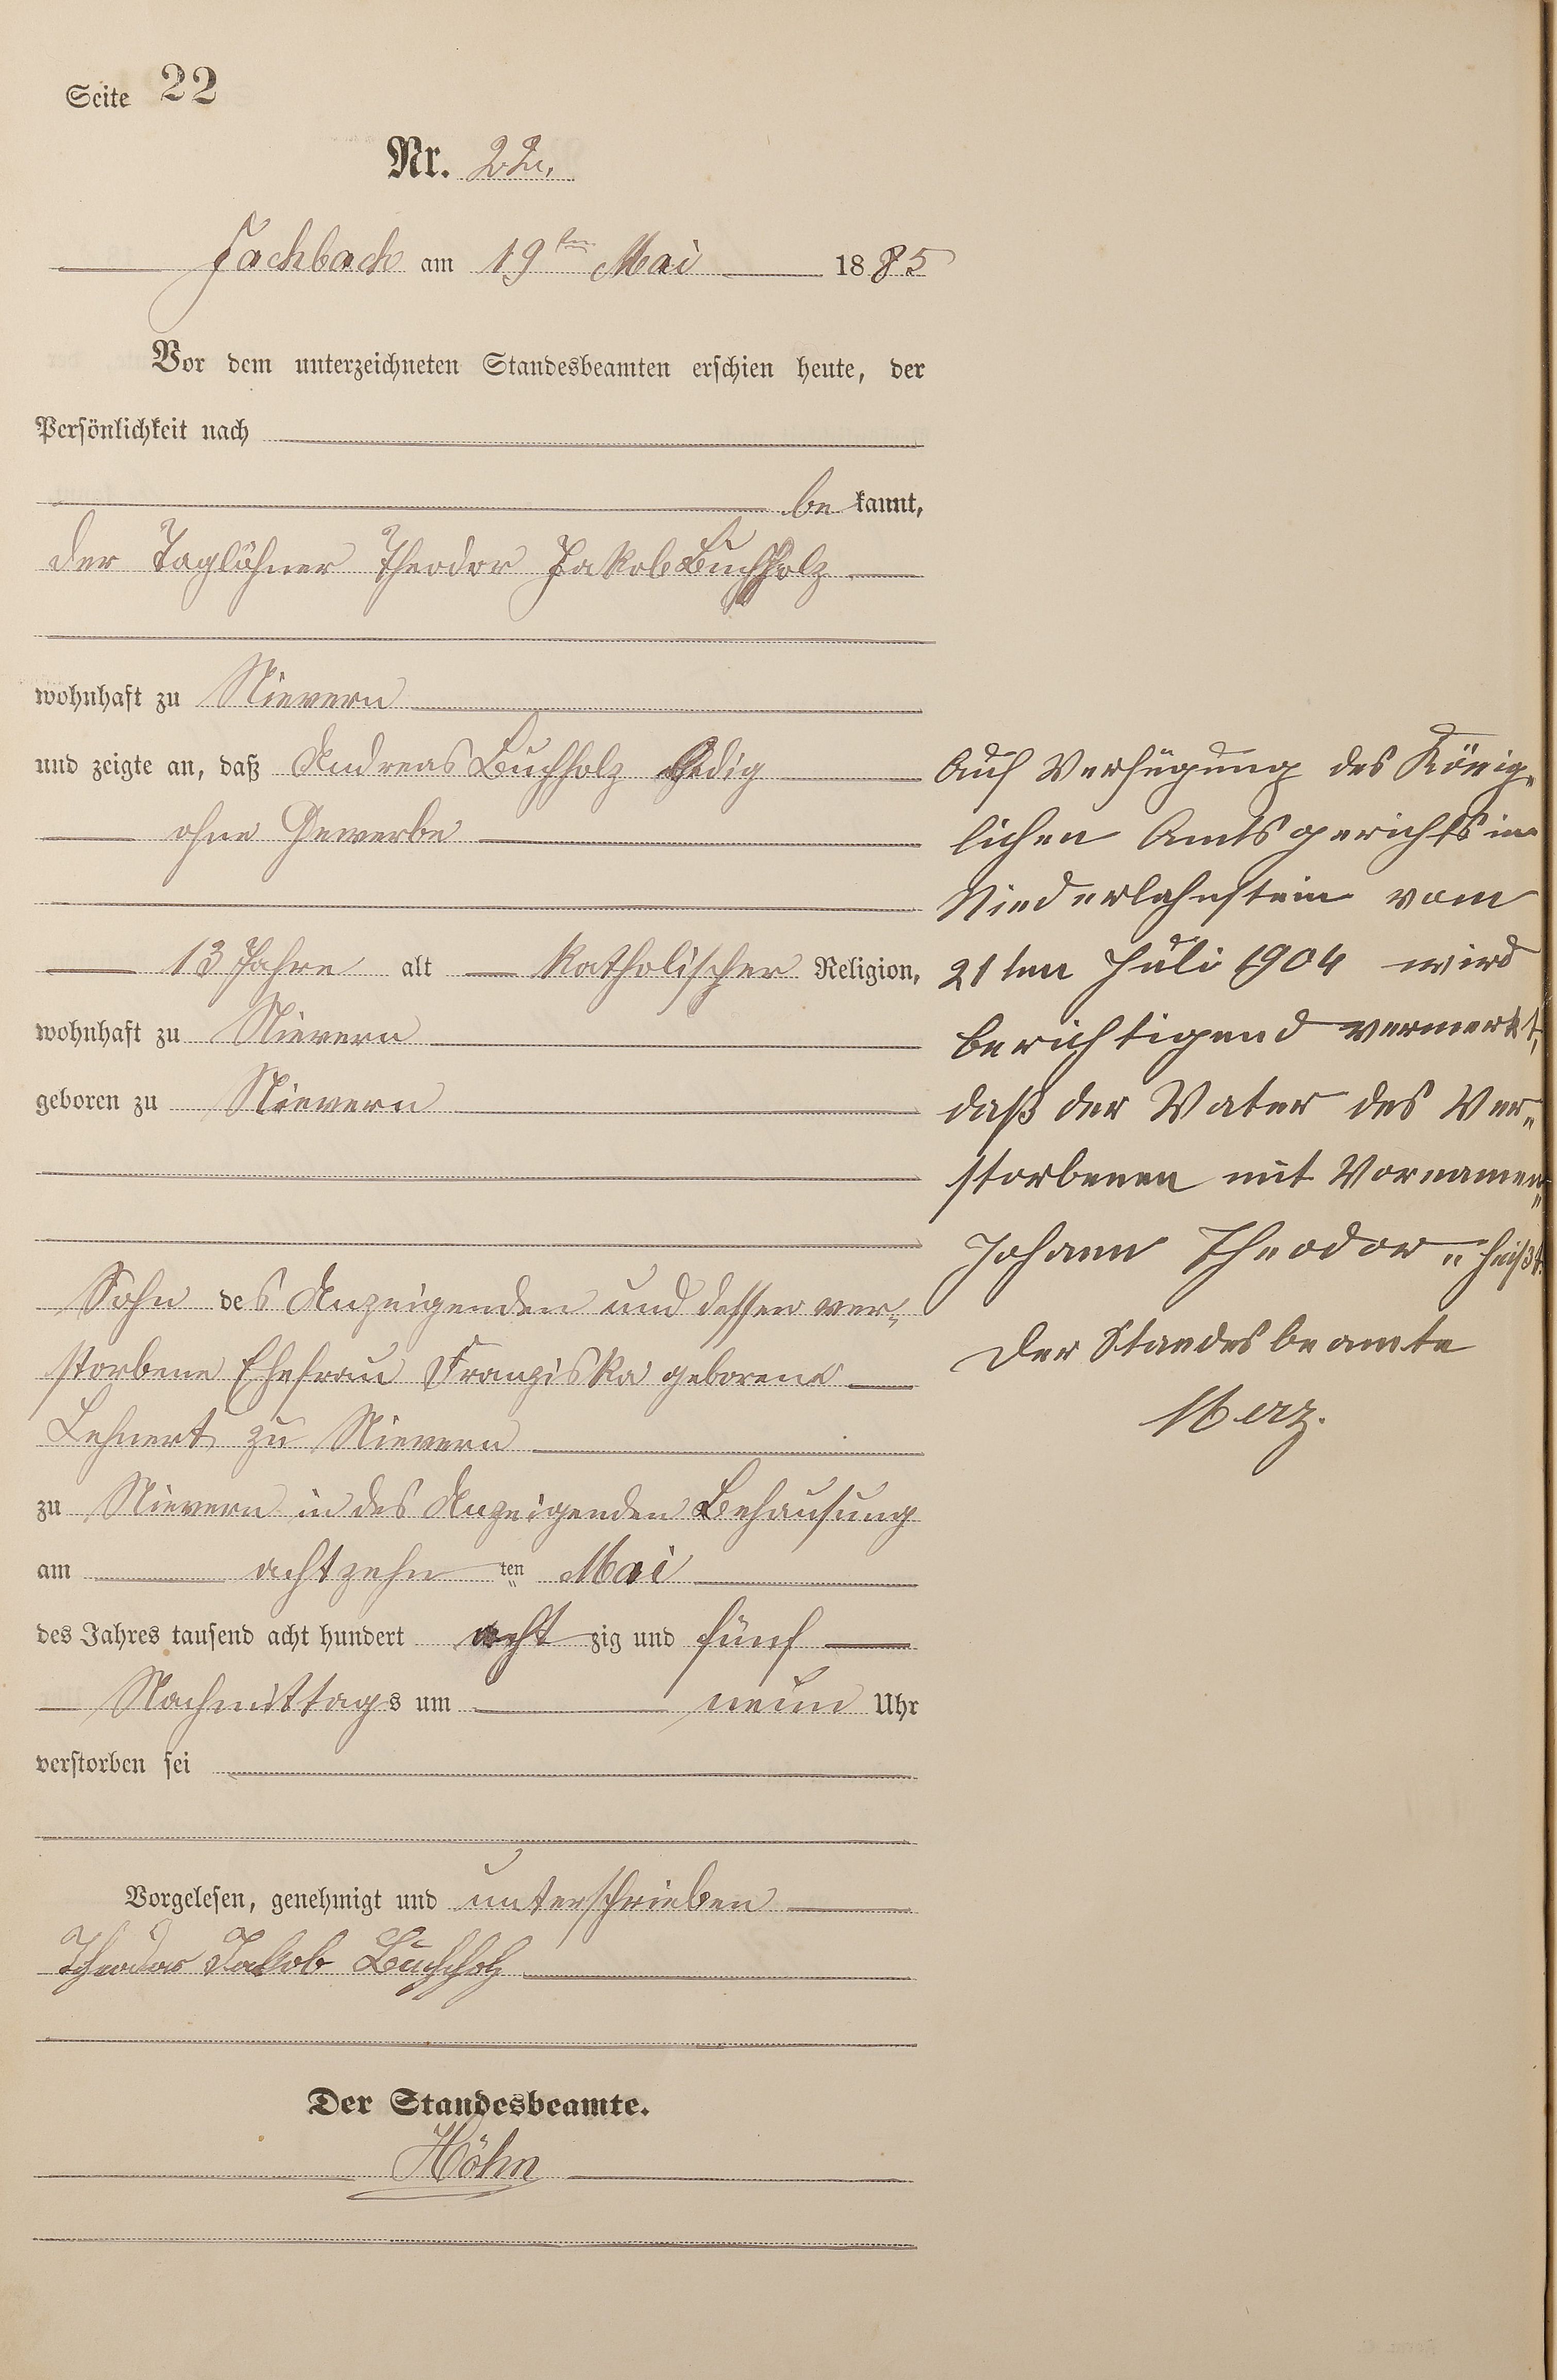 Seite 22
Nr. 22.
Fachbach am 19ten Mai 1885
Vor dem unterzeichneten Standesbeamten erschien heute, der
Persönlichkeit nach
be kannt,
der Taglöhner Theodor Jakob Buchholz
wohnhaft zu Nievern
und zeigte an, daß Andreas Buchholz ledig
ohne Gewerbe
13 Jahre alt katholischer Religion,
wohnhaft zu Nievern
geboren zu Nievern
Sohn des Anzeigenden und dessen ver-
storbene Ehefrau Franziska geborene
Lehnert zu Nievern
zu Nievern in des Anzeigenden Behausung
am achtzehn ten Mai
des Jahres tausend acht hundert acht zig und fünf
Nachmittags um neun Uhr
verstorben sei
Vorgelesen, genehmigt und unterschrieben
Theodor Jakob Buchholz
Der Standesbeamte.
Höhn
Auf Verfügung des König-
lichen Amtsgerichts in
Niederlahnstein vom
21ten Juli 1904 wird
berichtigend vermerkt,
daß der Vater des Ver-
storbenen mit Vornamen
"Johann Theodor" heißt.
Der Standesbeamte
Merz.